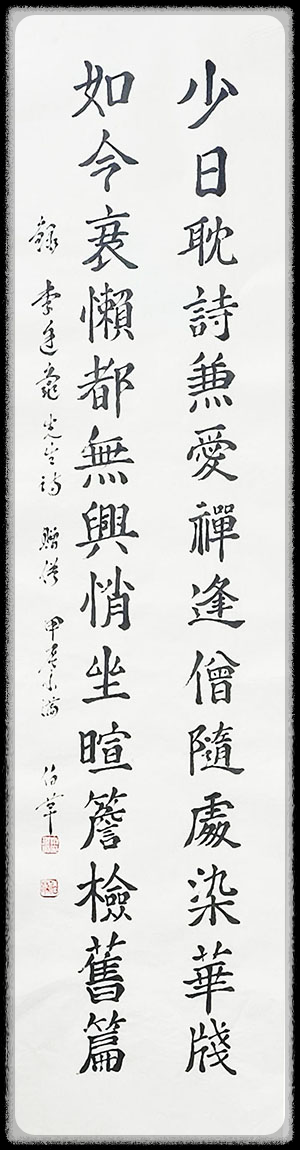 少日耽詩兼愛禪逢僧隨處染華牋
如今衰懶都無興悄坐暄簷檢舊篇
錄 李廷龜先生詩 甲辰小滿